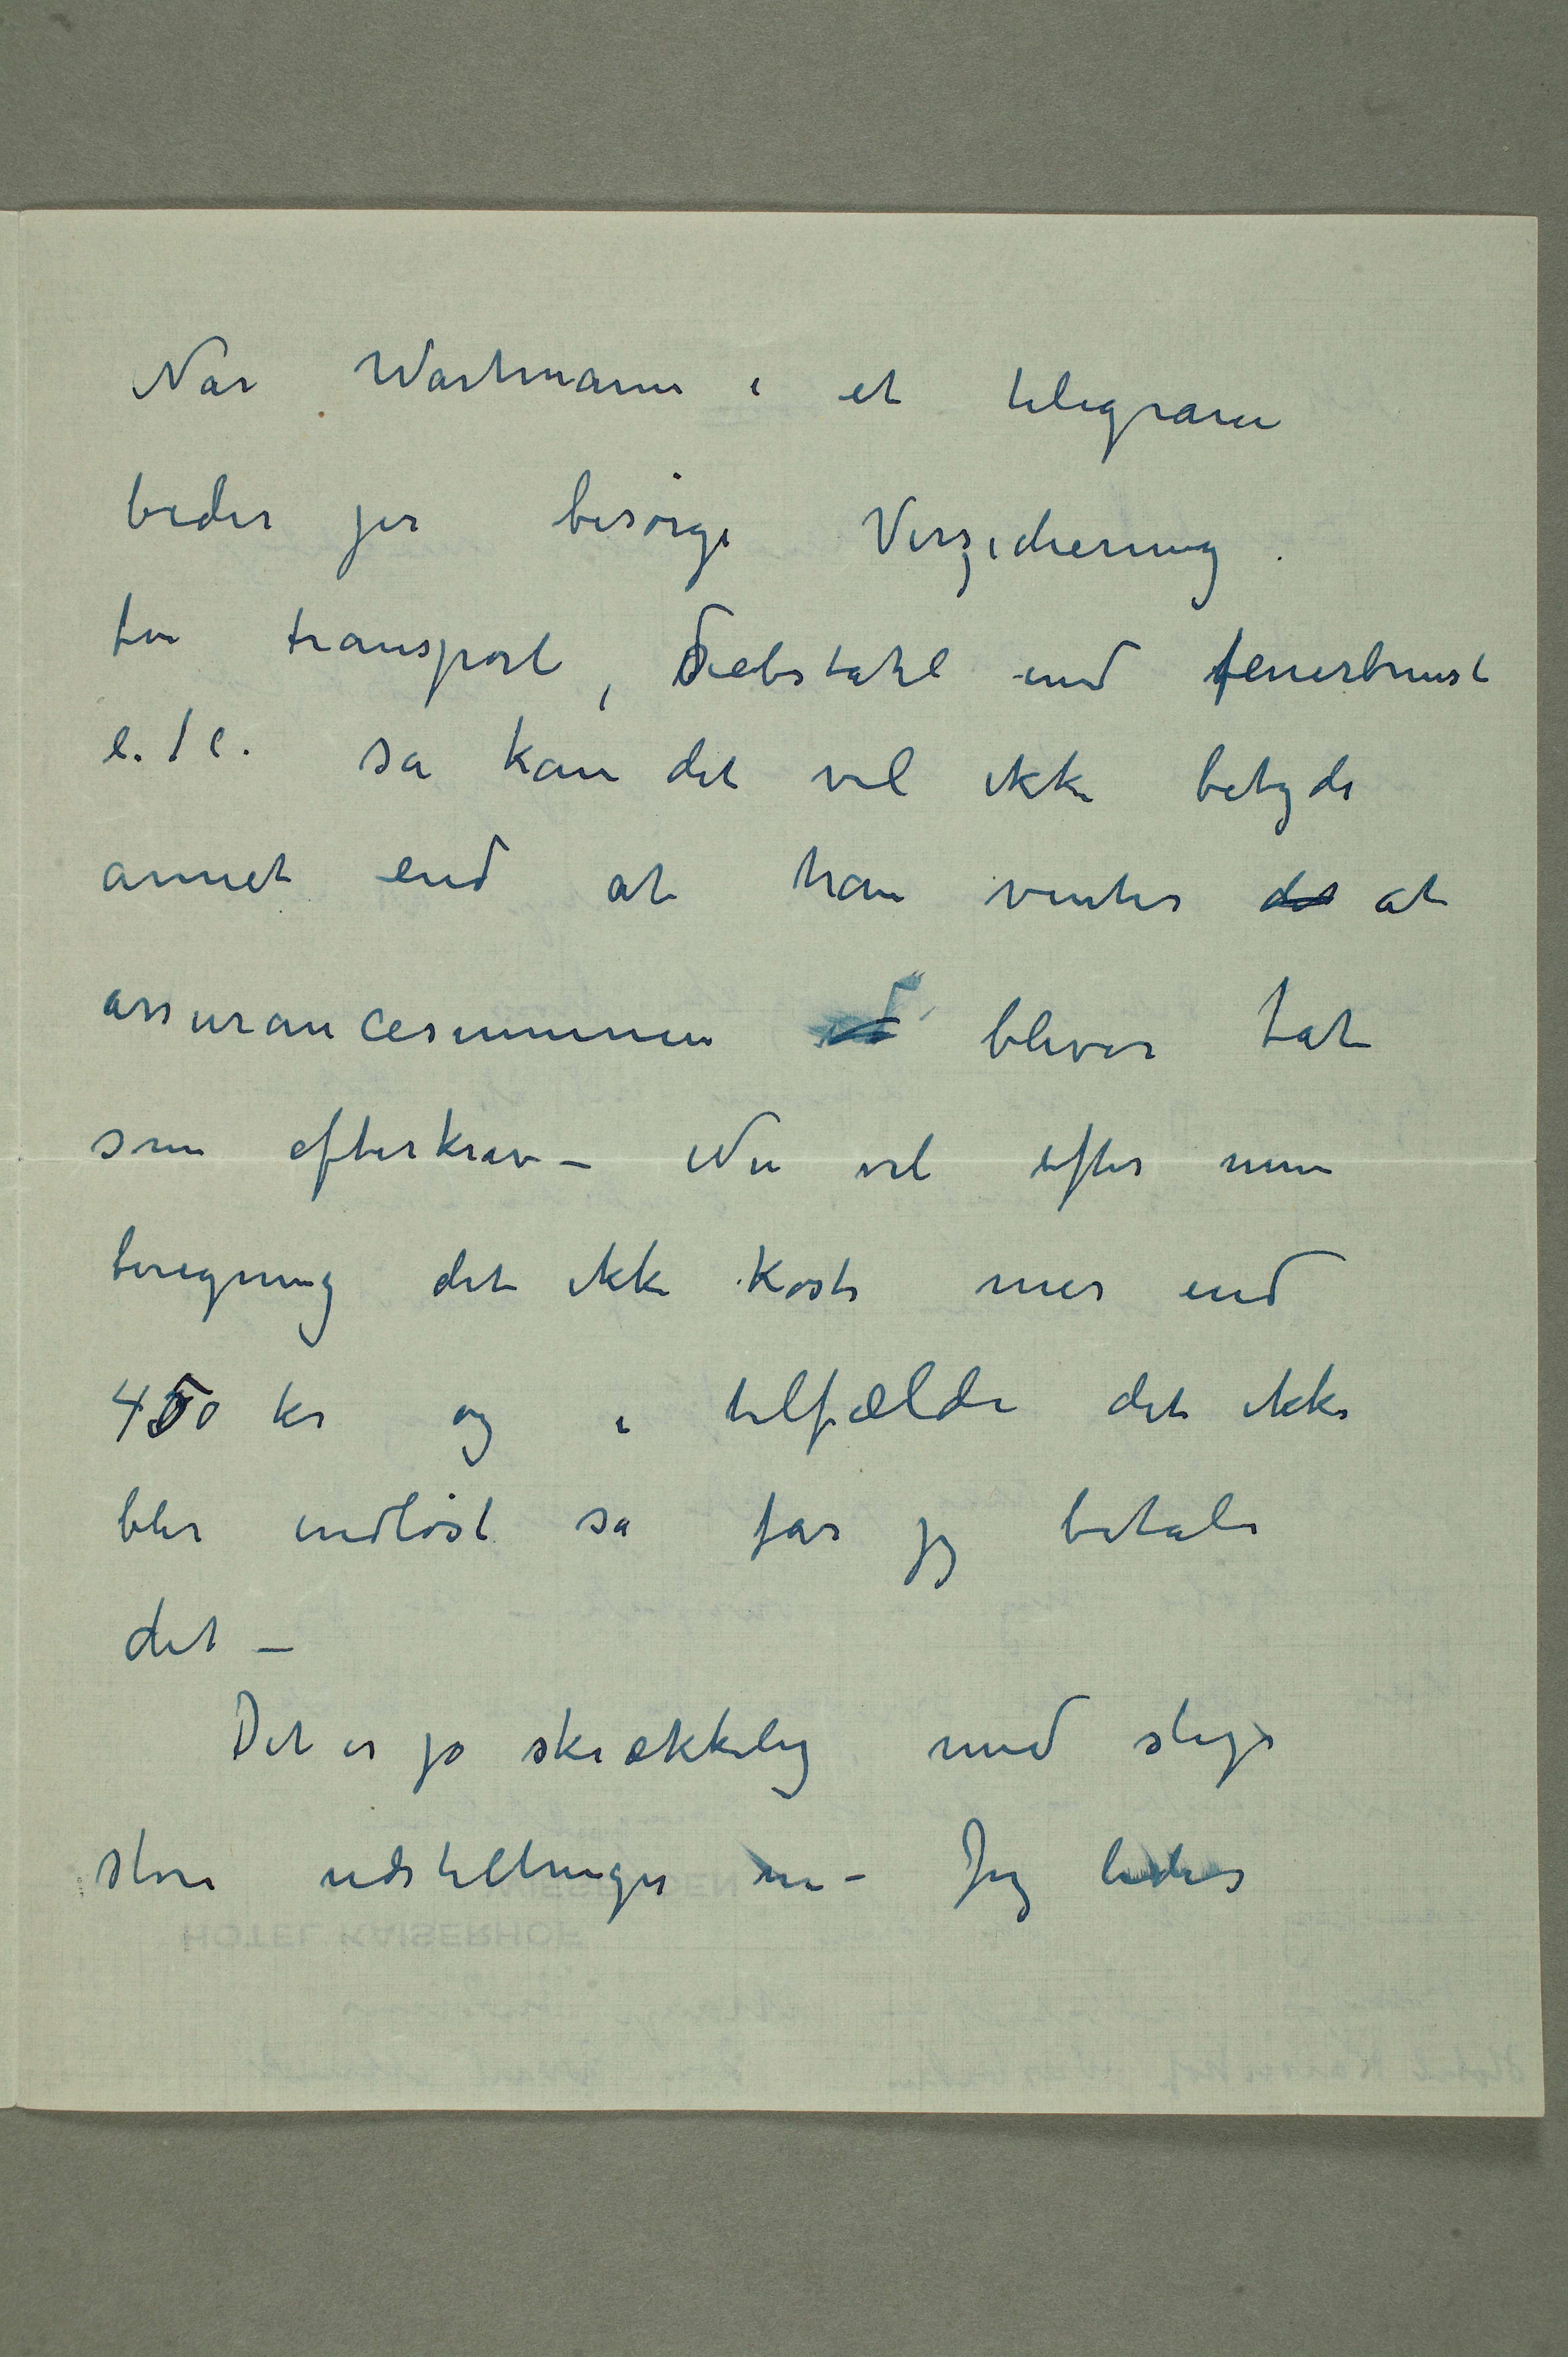 Når Wartmann i et telegram
beder jer besørge Verzicherung.
for transport, Diebstahl und feuerbrunst
e.t.c. så kan det vel ikke betyde
annet end at han venter det at
assurancesummen bliver tat
som efterkrav – Nu vil efter min
beregning det ikke koste mer end
450 kr og i tilfælde det ikke
blir indløst så får jeg betale
det –
Det er jo skrækkelig med slige
store udstillinger nu – Jeg ledes
HOTEL KAISERHOF